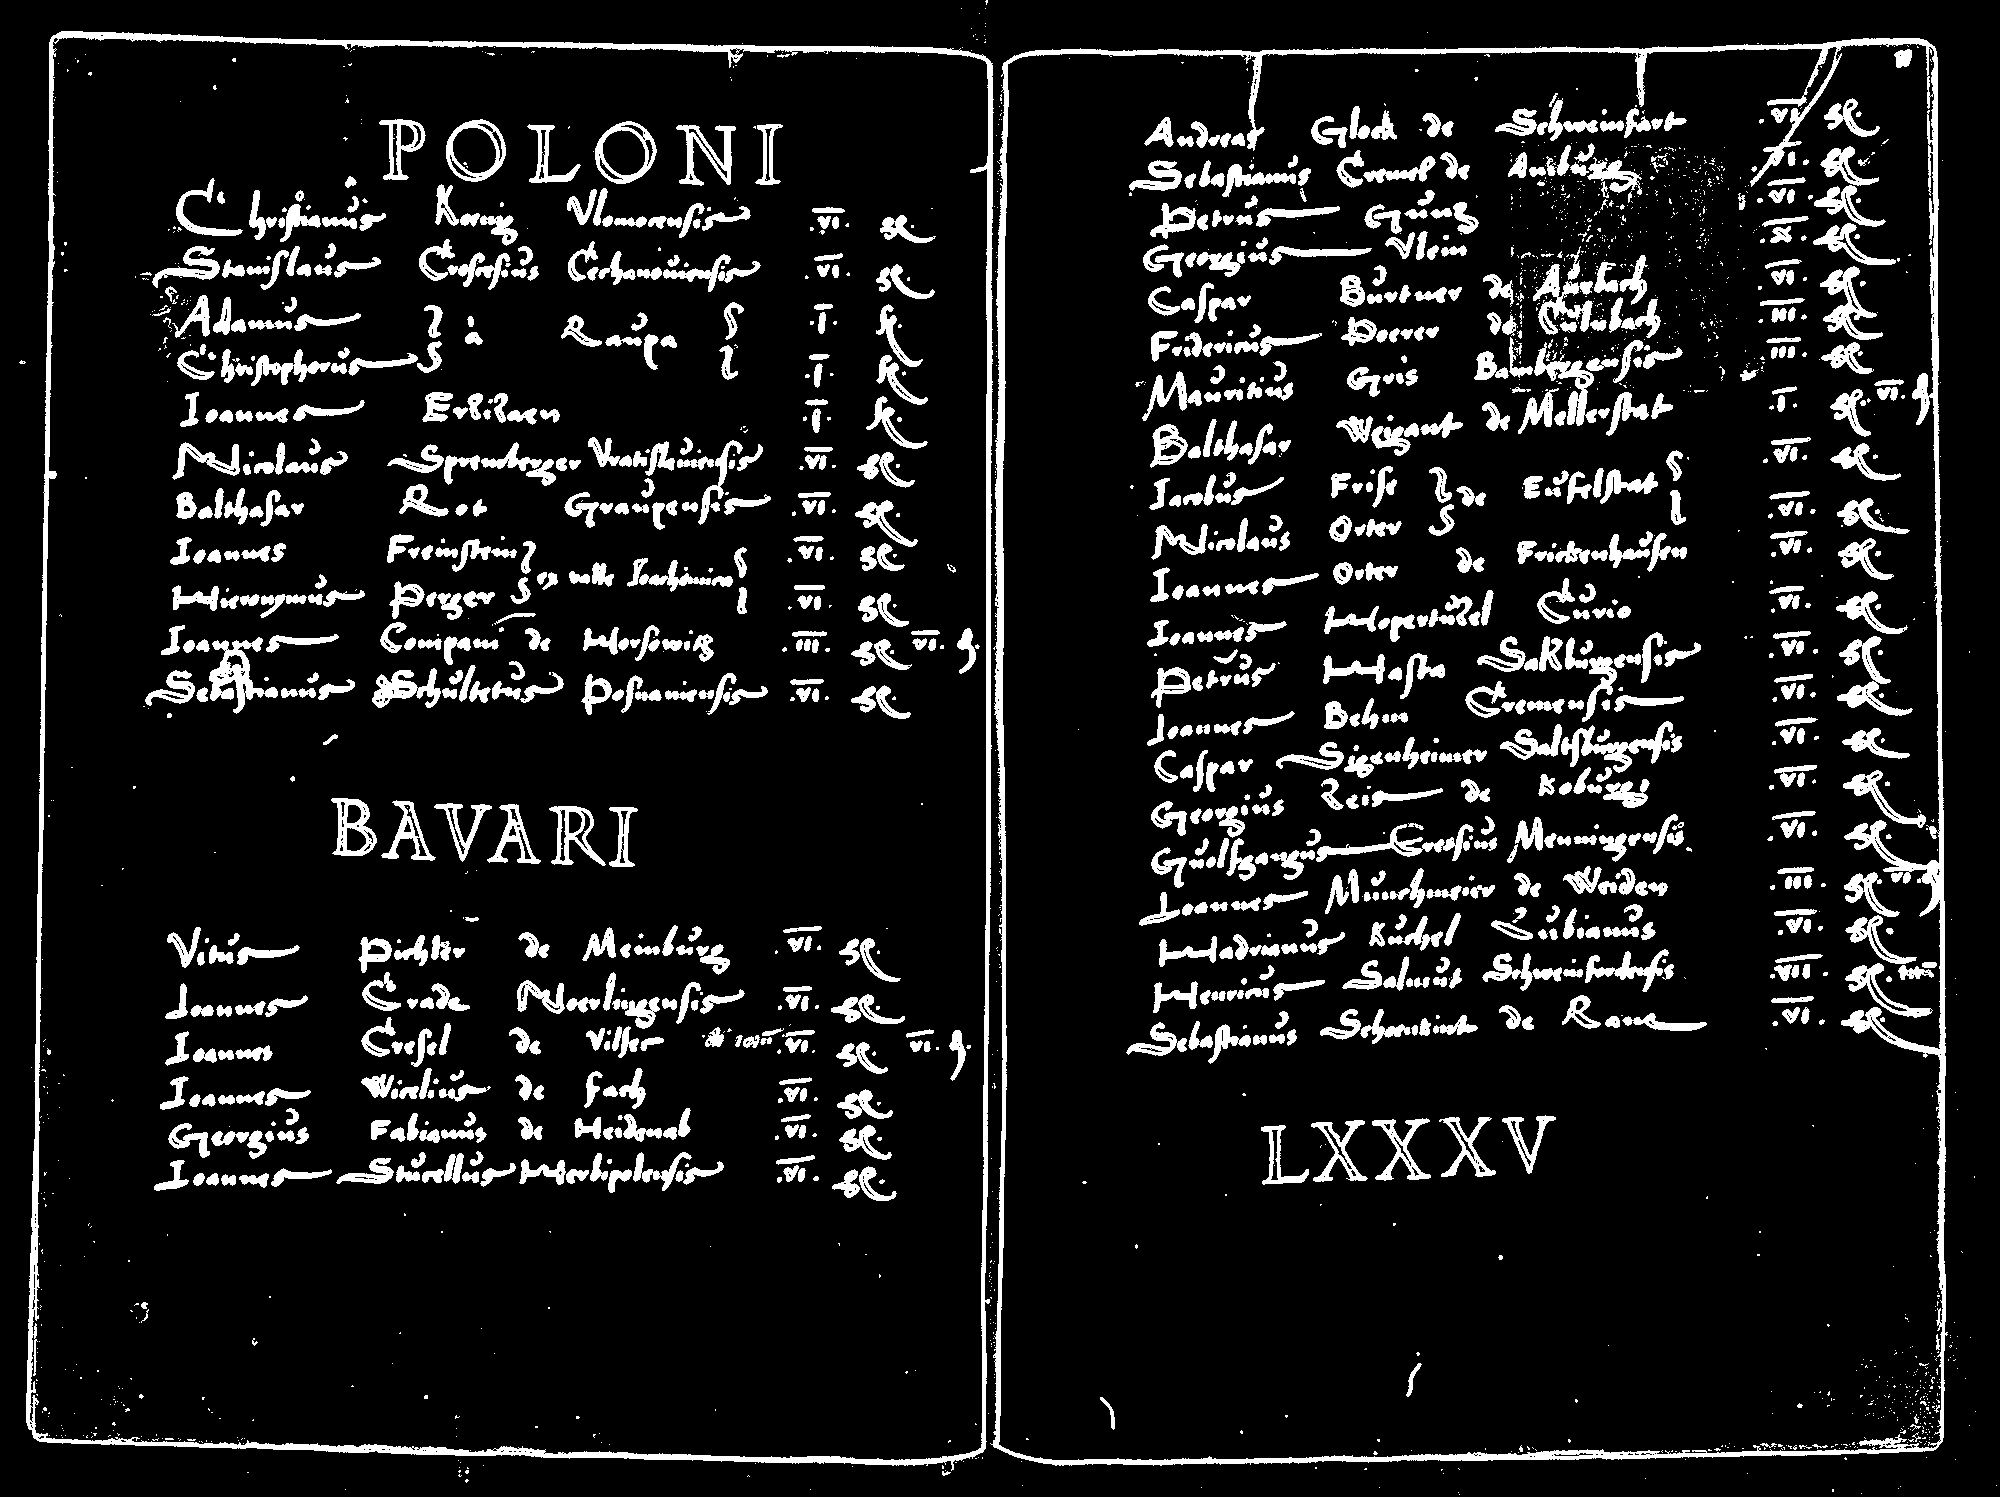 POLONI
Christianus Koenig Vlomocensis .VI. gl.
Stanislaus Crosesius Cechanouiensis .VI. gl.
Adamus .I. gl.
à Raupa
Christophorus .I. gl.
Ioannes .I. gl.
Nicolaus Spremberger Vratislauiensis .VI. gl.
Balthasar Rot Graupensis .VI. gl.
Ioannes Freinstein .VI. gl.
ex valle Ioachimica
Hieronymus Perger .VI. gl.
Ioannes Compani de Horsowitz .III. gl. VI. d.
Sebastianus Schultetus Posnaniensis .VI. gl.
BAVARI
Vitus Pichler de Meinburg .VI. gl.
Ioannes Crade Noerlingensis .VI. gl.
Ioannes Cresel de Vilser .VI. gl. VI. d.
Ioannes Wirelius de Fach .VI. gl.
Georgius Fabianus de Heidenab .VI. gl.
Ioannes Sturellus Herbipolensis .VI. gl.
Andreas Glock de Schweinfart .VI. gl.
Sebastianus Cremel de Ausburg .VI. gl.
Petrus Gung .VI. gl.
Georgius Vlein .X. gl.
Caspar Burtner de Aurbach .VI. gl.
Fridericus Poerer de Culmbach .III. gl.
Mauritius Gris Bambergensis .III. gl.
Balthasar Weigant de Mellerstat .I. gl. VI. d.
Iacobus Frise .VI. gl.
de Eufelstat
Nicolaus Orter .VI. gl.
Ioannes Orter de Frickenhausen .VI. gl.
Ioannes Curio .VI. gl.
Petrus Hasta Saltzburgensis .VI. gl.
Ioannes Behm Cremensis .VI. gl.
Caspar Sigenheimer Saltsburgensis .VI. gl.
Georgius Reis de Koburg .VI. gl.
Guolfgangus Cressius Menningensis .VI. gl.
Ioannes Munchmeier de Weiden .III. gl. VI. d.
Hadrianus Kuchel Zubianus .VI. gl.
Henricus Salmut Schweinfordensis .VII. gl.
Sebastianus Schenkint de Rane .VI. gl.
LXXXV